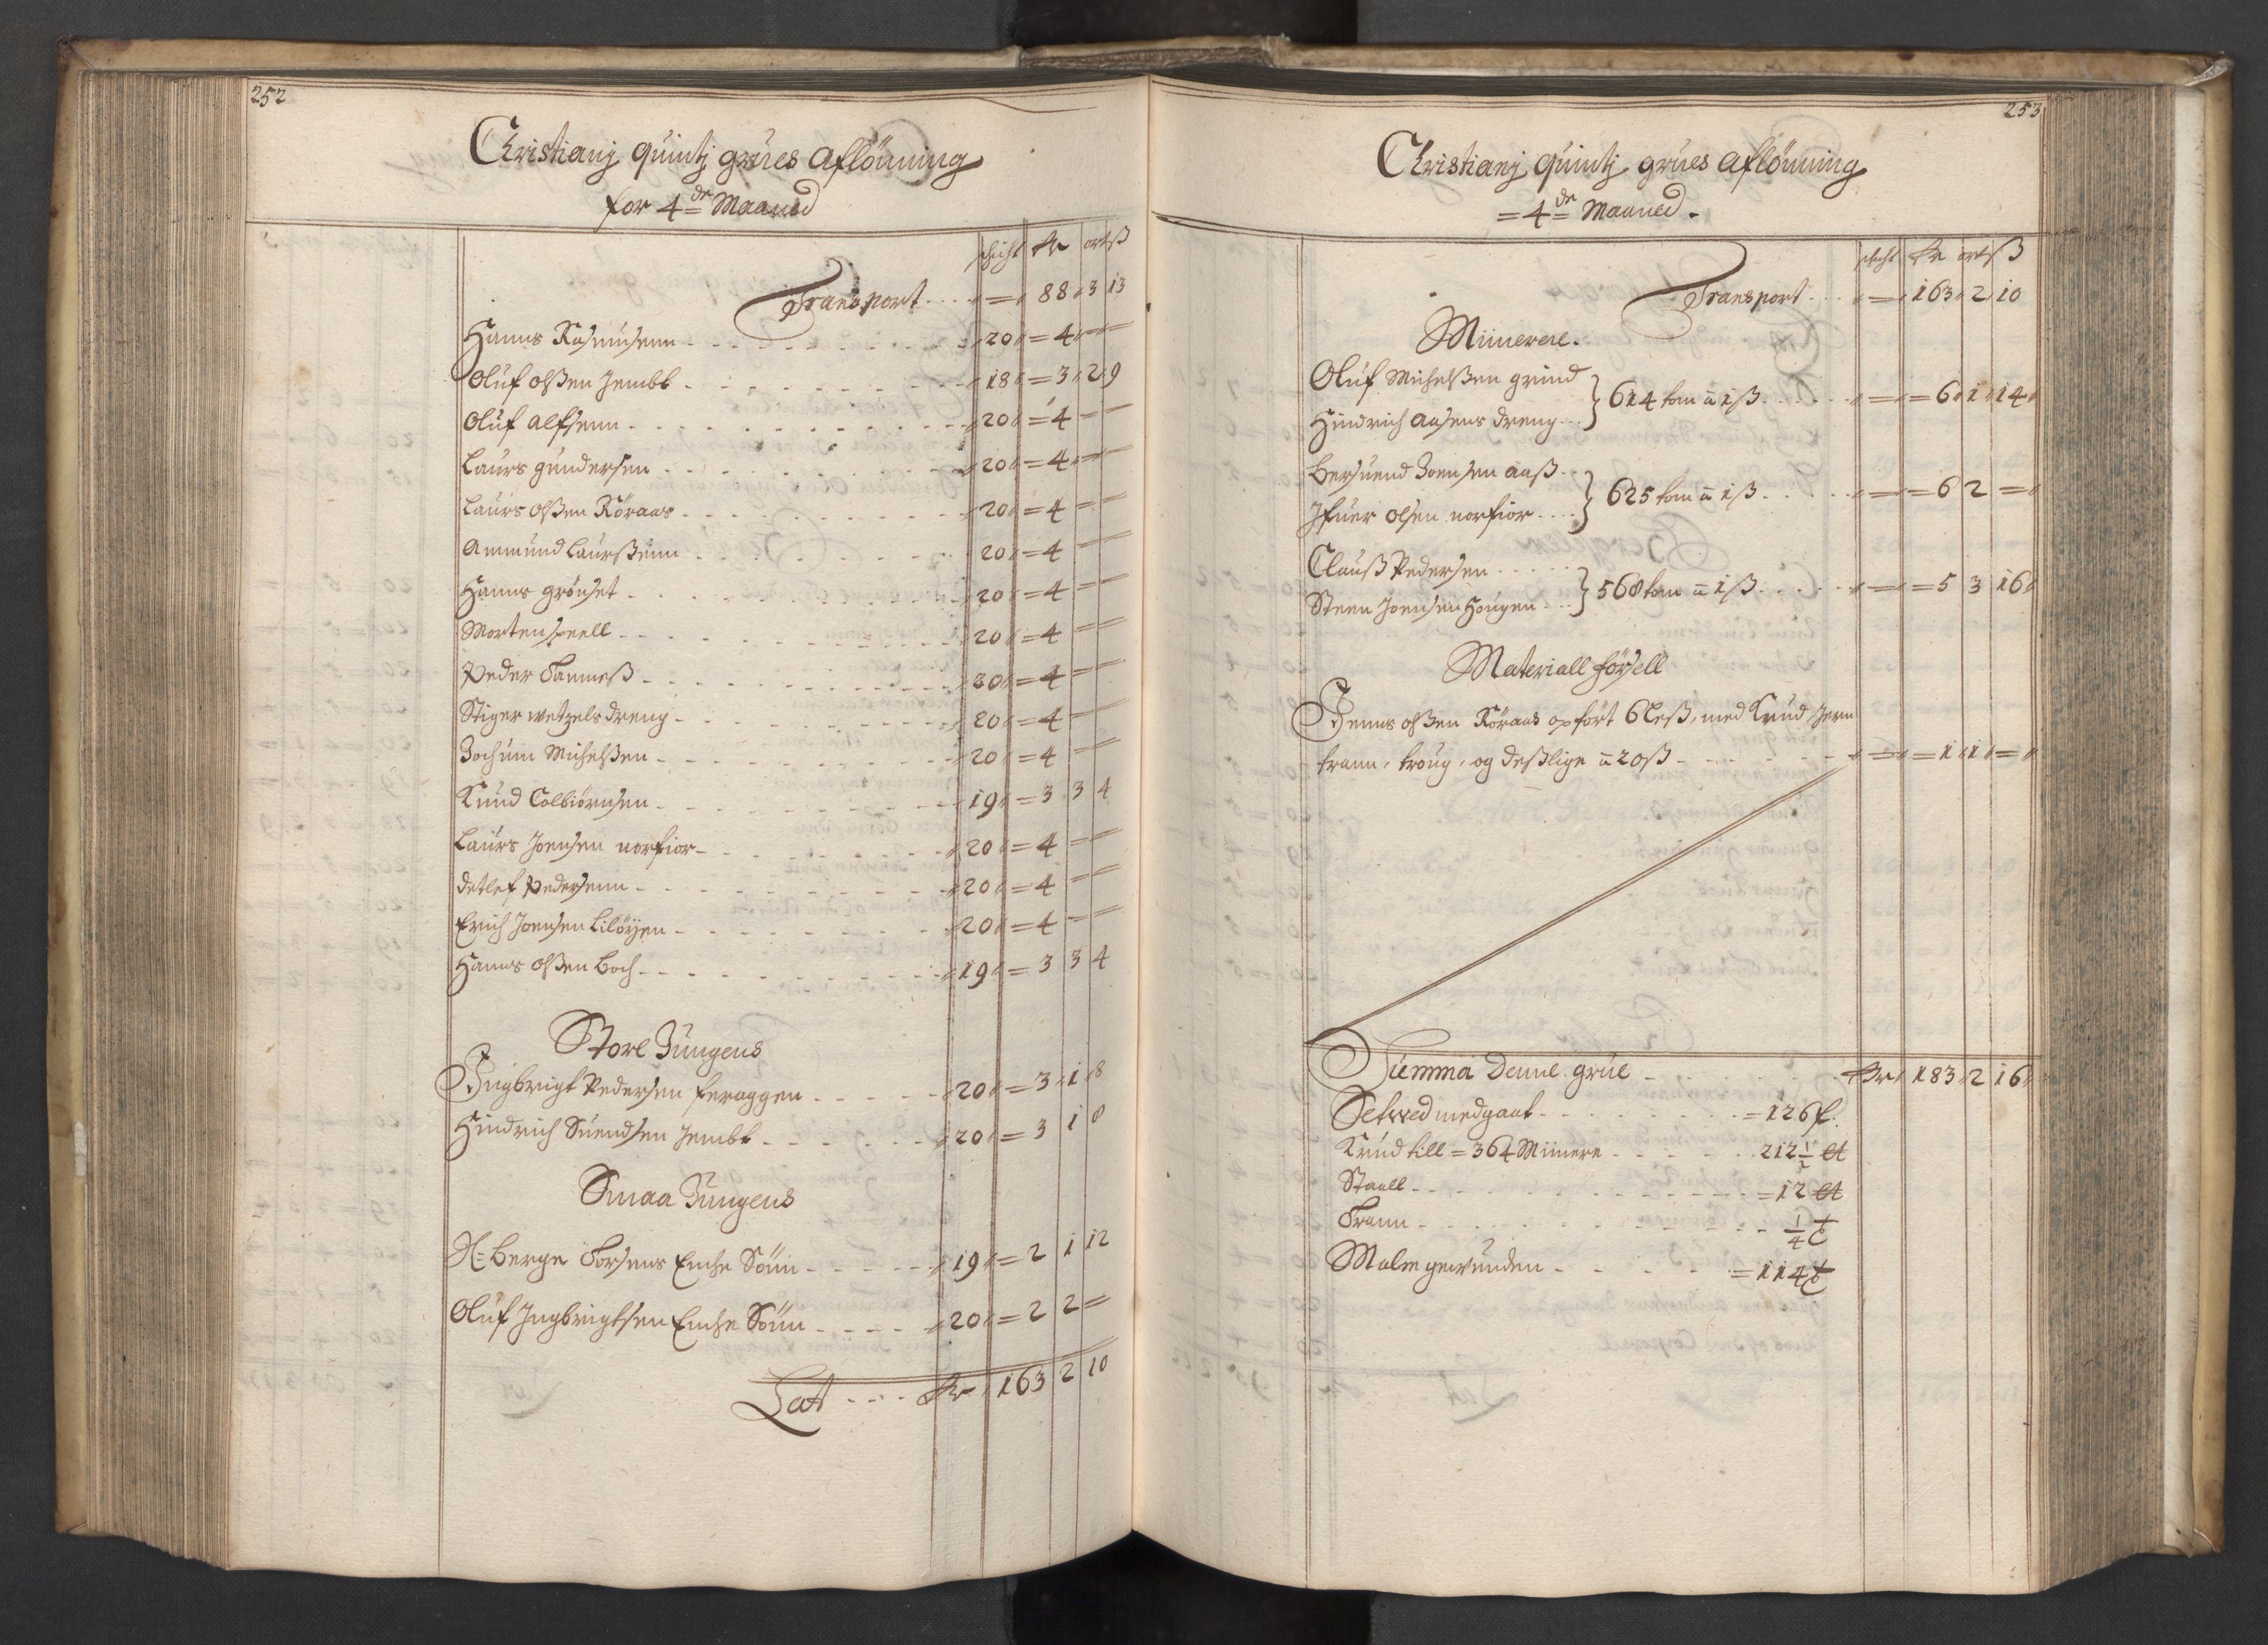 252
Christianj quintj grues aflönning
for 4de Maaned
schicht Rr ort ß
Transport.... = 88 3 13
Hanns Rasmusenn 20 = 4 =
Oluf olßen Jembt 18 = 3 2 9
Oluf Alfsenn 20 = 4 =
Laurs gundersen 20 = 4 =
Laurs olßen Röraas 20 = 4 =
Ammund Laurßenn 20 = 4 =
Hanns grönset 20 = 4 =
Morten spell 20 = 4 =
Peder Tamneß 20 = 4 =
Stiger wetzels dreng 20 = 4 =
Jochum Michelßen 20 = 4 =
Knud Colbiörnsen 19 = 3 3 4
Laurs Joensen norfior 20 = 4 =
detlef Pedersenn 20 = 4 =
Erich Joensen Liløyen 20 = 4 =
Hanns olßen Boch 19 = 3 3 4
Store Jungens
Ingbrigt Pedersen feraggen 20 = 3 1 8
Hindrich Suendsen Jembt 20 = 3 1 8
Smaa Jungens
H: Berge Torsens Enche Sönn 19 = 2 1 12
Oluf Ingbrigtsen Enche Sönn 20 = 2 2 =
Lat.... Rr 163 2 10
253
Christianj quintj grues aflönning
= 4de Maaned.
schicht Rr ort ß
Transport... = 163 2 10
Minerere.
Oluf Michelßen grind
Hindrich Aasens dreng } 614 tom a 1 ß = 6 1 14
Bersuend Joensen aaß
Ifuer olsen norfior } 625 tom a 1 ß = 6 2 =
Clauß Pedersen
Steen Joensen Hougen } 568 tom a 1 ß = 5 3 16
Materiall försell
Jenns olßen Röraas opfört 6 leß, med Krud Jern
trann, troug, og deßlige a 20 ß = 1 1 =
Summa denne grue Rr 183 2 16
Setwed medgaat = 126 f.
Krud till = 364 Minere 212 1/2 ℔
Staall = 12 ℔
Trann 1/4 t
Malm gewunden = 114 t